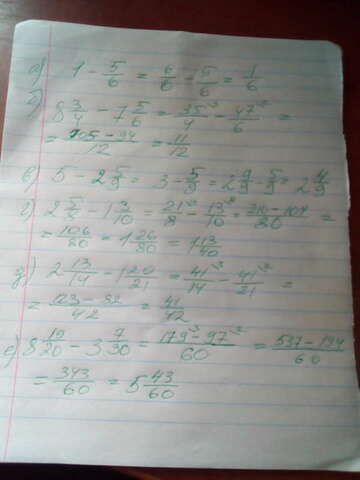 а) 1 - 5/6 = 6/6 - 5/6 = 1/6
б)
8 3/4 - 7 5/6 = 35^3/4 - 47^2/6 =
= 105-94/12 = 11/12
в) 5 - 2 5/9 = 3 - 5/9 = 2 9/9 - 5/9 = 2 4/9
г) 2 5/8 - 1 3/10 = 21/8 - 13^8/10 = 210-104/80 =
= 106/80 = 1 26/80 = 1 13/40
д) 2 13/14 - 1 20/21 = 41^3/14 - 41^2/21 =
= 123-82/42 = 41/42
е) 8 19/20 - 3 7/30 = 179^3-97^2/60 = 537-194/60
= 343/60 = 5 43/60